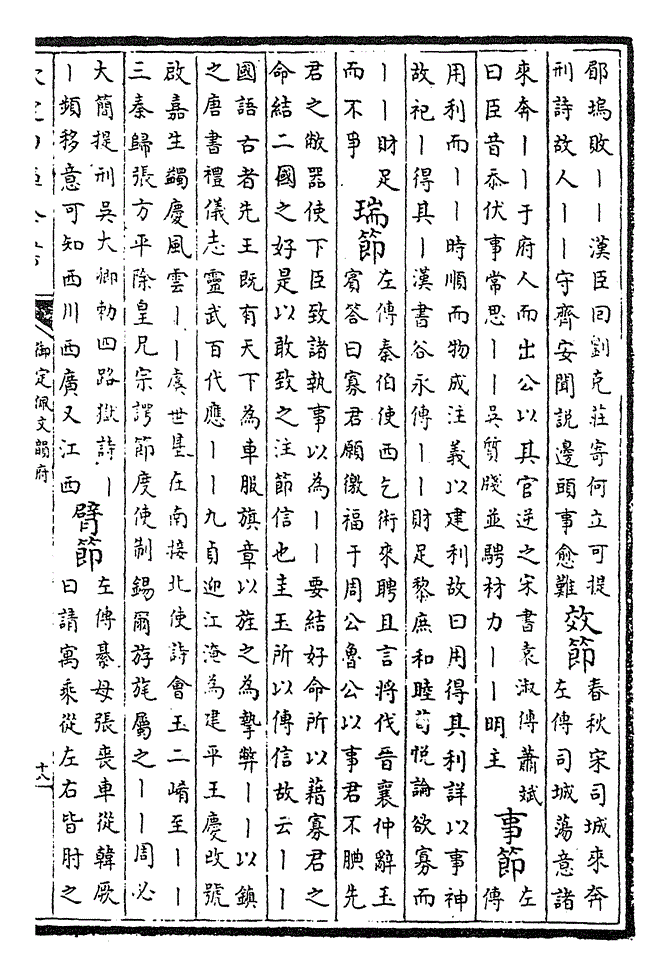 郿塢敗丨丨漢臣回劉克莊寄何立可提
刑詩故人丨丨守齊安聞說邊頭事愈難
效節
春秋宋司城來奔
左傳司城蕩意諸
來奔丨丨于府人而出公以其官逆之宋書袁淑傳蕭斌
曰臣昔忝伏事常思丨丨吳質牋並騁材力丨丨明主
事節
左
傳
用利而丨丨時順而物成注義以建利故曰用得其利詳以事神
故祀丨得其丨漢書谷永傳丨丨財足黎庶和睦荀悅論欲寡而
丨丨財足
而不爭
瑞節
左傳秦伯使西乞術來聘且言將伐晉襄仲辭玉
賓答曰寡君願徼福于周公魯公以事君不腆先
君之敝器使下臣致諸執事以為丨丨要結好命所以藉寡君之
命結二國之好是以敢致之注節信也圭玉所以傳信故云丨丨
國語古者先王既有天下為車服旗章以旌之為摯幣丨丨以鎮
之唐書禮儀志靈武百代應丨丨九貞迎江淹為建平王慶改號
啟嘉生蠲慶風雲丨丨虞世基在南接北使詩會玉二崤至丨丨
三秦歸張方平除皇兄宗諤節度使制錫爾斿旄屬之丨丨周必
大簡提刑吳大卿勅四路獄詩丨
丨頻移意可知西川西廣又江西
臂節
左傳綦母張喪車從韓厥
曰請寓乘從左右皆肘之
御定佩文韻府
十八